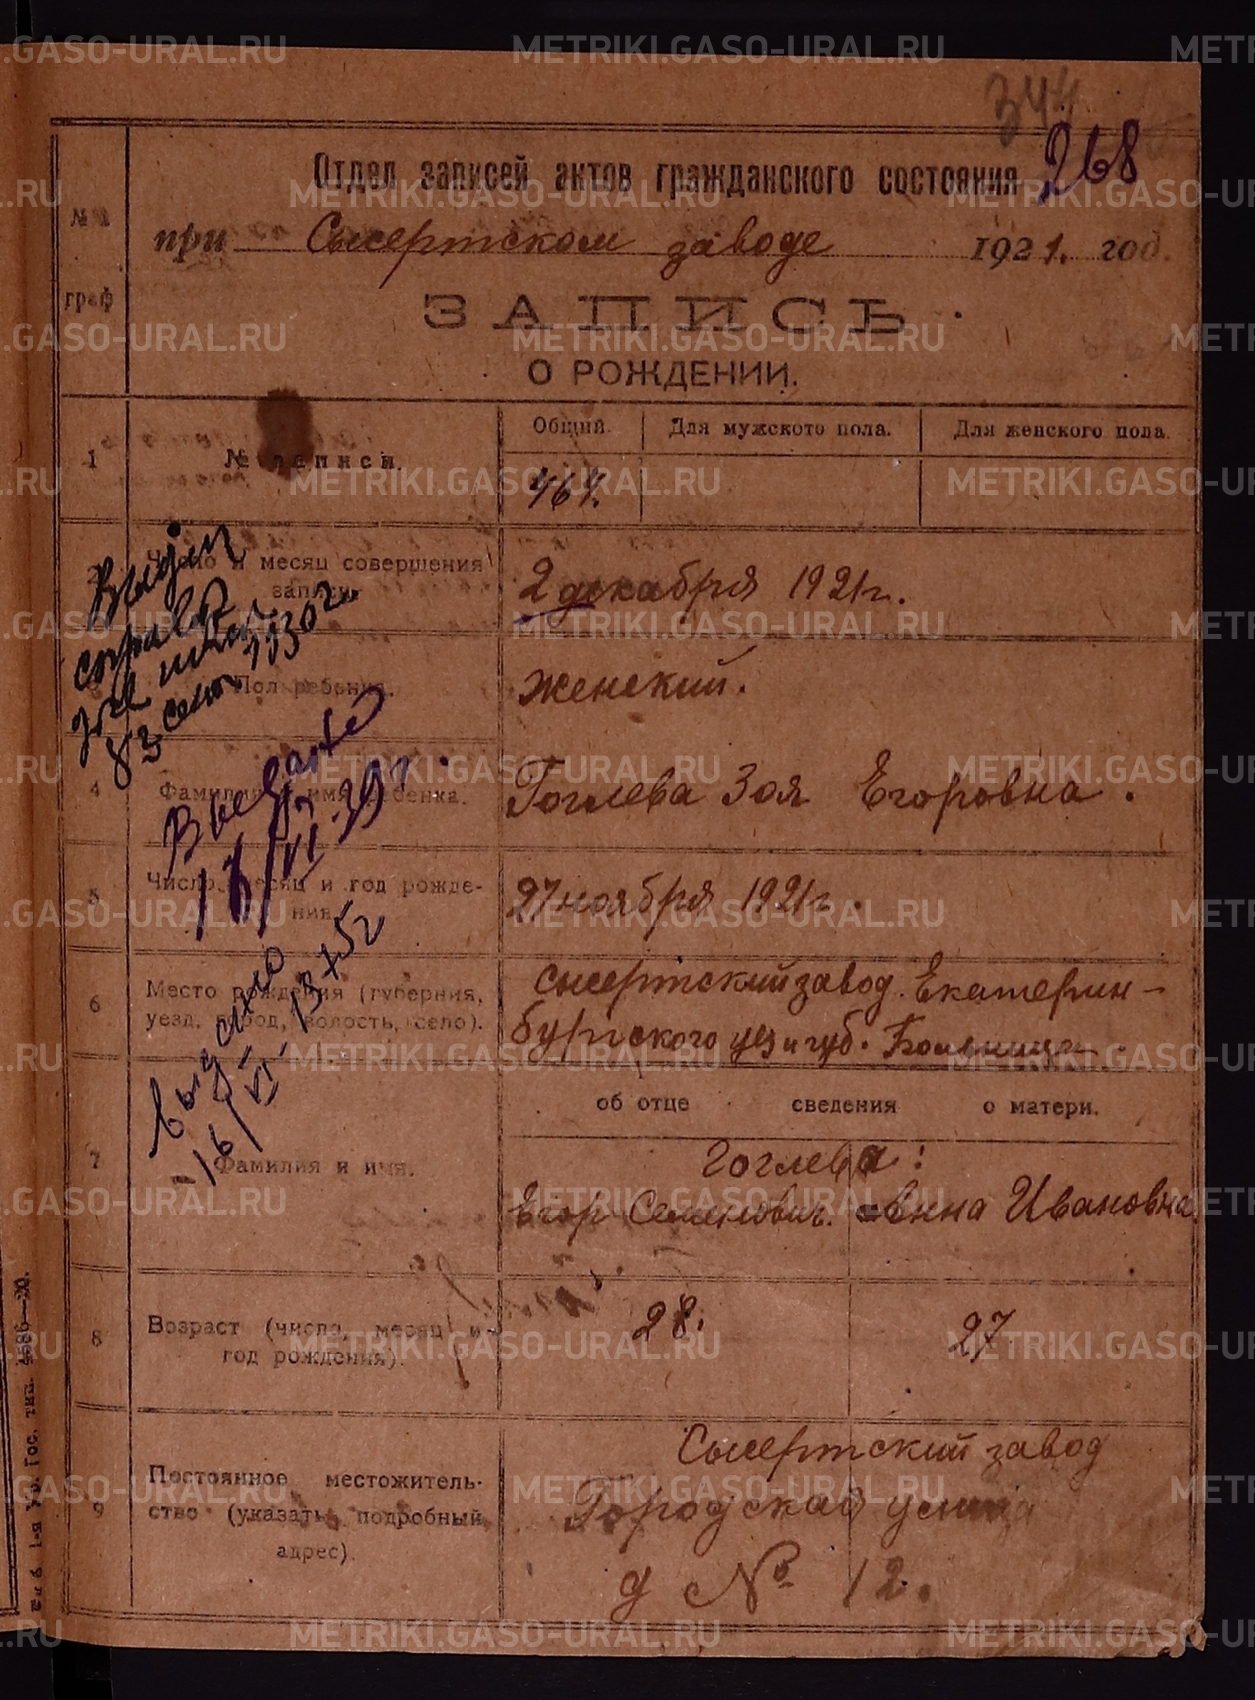 344
268
Отдел записей актов гражданского состояния
при Сысертском заводе 1921. год.
№№
граф
ЗАПИСЬ
О РОЖДЕНИИ.
1
№ записи.
Общий.
Для мужского пола.
Для женского пола.
464.
Число и месяц совершения
записи.
2 декабря 1921 г.
Пол ребенка.
Женский.
4
Фамилия и имя ребенка.
Гоглева Зоя Егоровна.
5
Число, месяц и год рожде-
ния.
27 ноября 1921 г.
6
Место рождения (губерния,
уезд, город, волость, село).
Сысертский завод. Екатерин-
бургского уез и губ. Больница.
об отце сведения о матери.
7
Фамилия и имя.
Гоглева:
Егор Семенович. Анна Ивановна.
8
Возраст (число, месяц и
год рождения).
28.
27
9
Постоянное местожитель-
ство (указать подробный
адрес).
Сысертский завод
Городская улица
д № 12.
3 сент 1930 г.
17/VI-39 г.
Выдано
16/VI-
METRIKI.GASO-URAL.RU